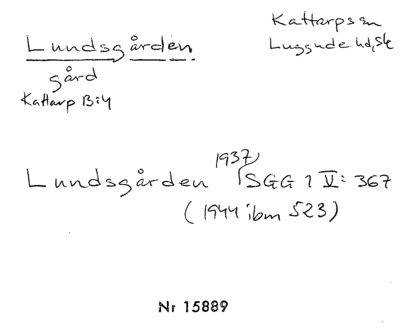 Lundsgården
gård
Kattarp Bi4
Kattarps sn
Luggude hd, Sk
Lundsgården 1937 SGG 1 V: 367
(1944 ibm 523)
Nr 15889